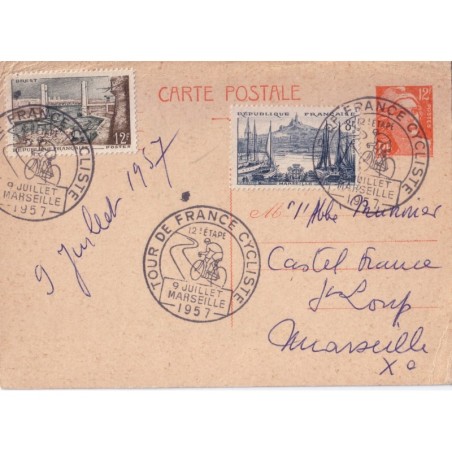 BREST
12F
RÉPUBLIQUE FRANÇAISE
CARTE POSTALE
RÉPUBLIQUE FRANÇAISE
8F
MARSEILLE
12F
FRANCE CYCLISTE
9 JUILLET
MARSEILLE
1957
FRANCE CYCLISTE
12E ETAPE
9 JUILLET
MARSEILLE
1957
9 Juillet 1957
TOUR DE FRANCE CYCLISTE
12E ETAPE
9 JUILLET
MARSEILLE
1957
M. l'Abbé
Castel France
St Loup
Marseille
Xe